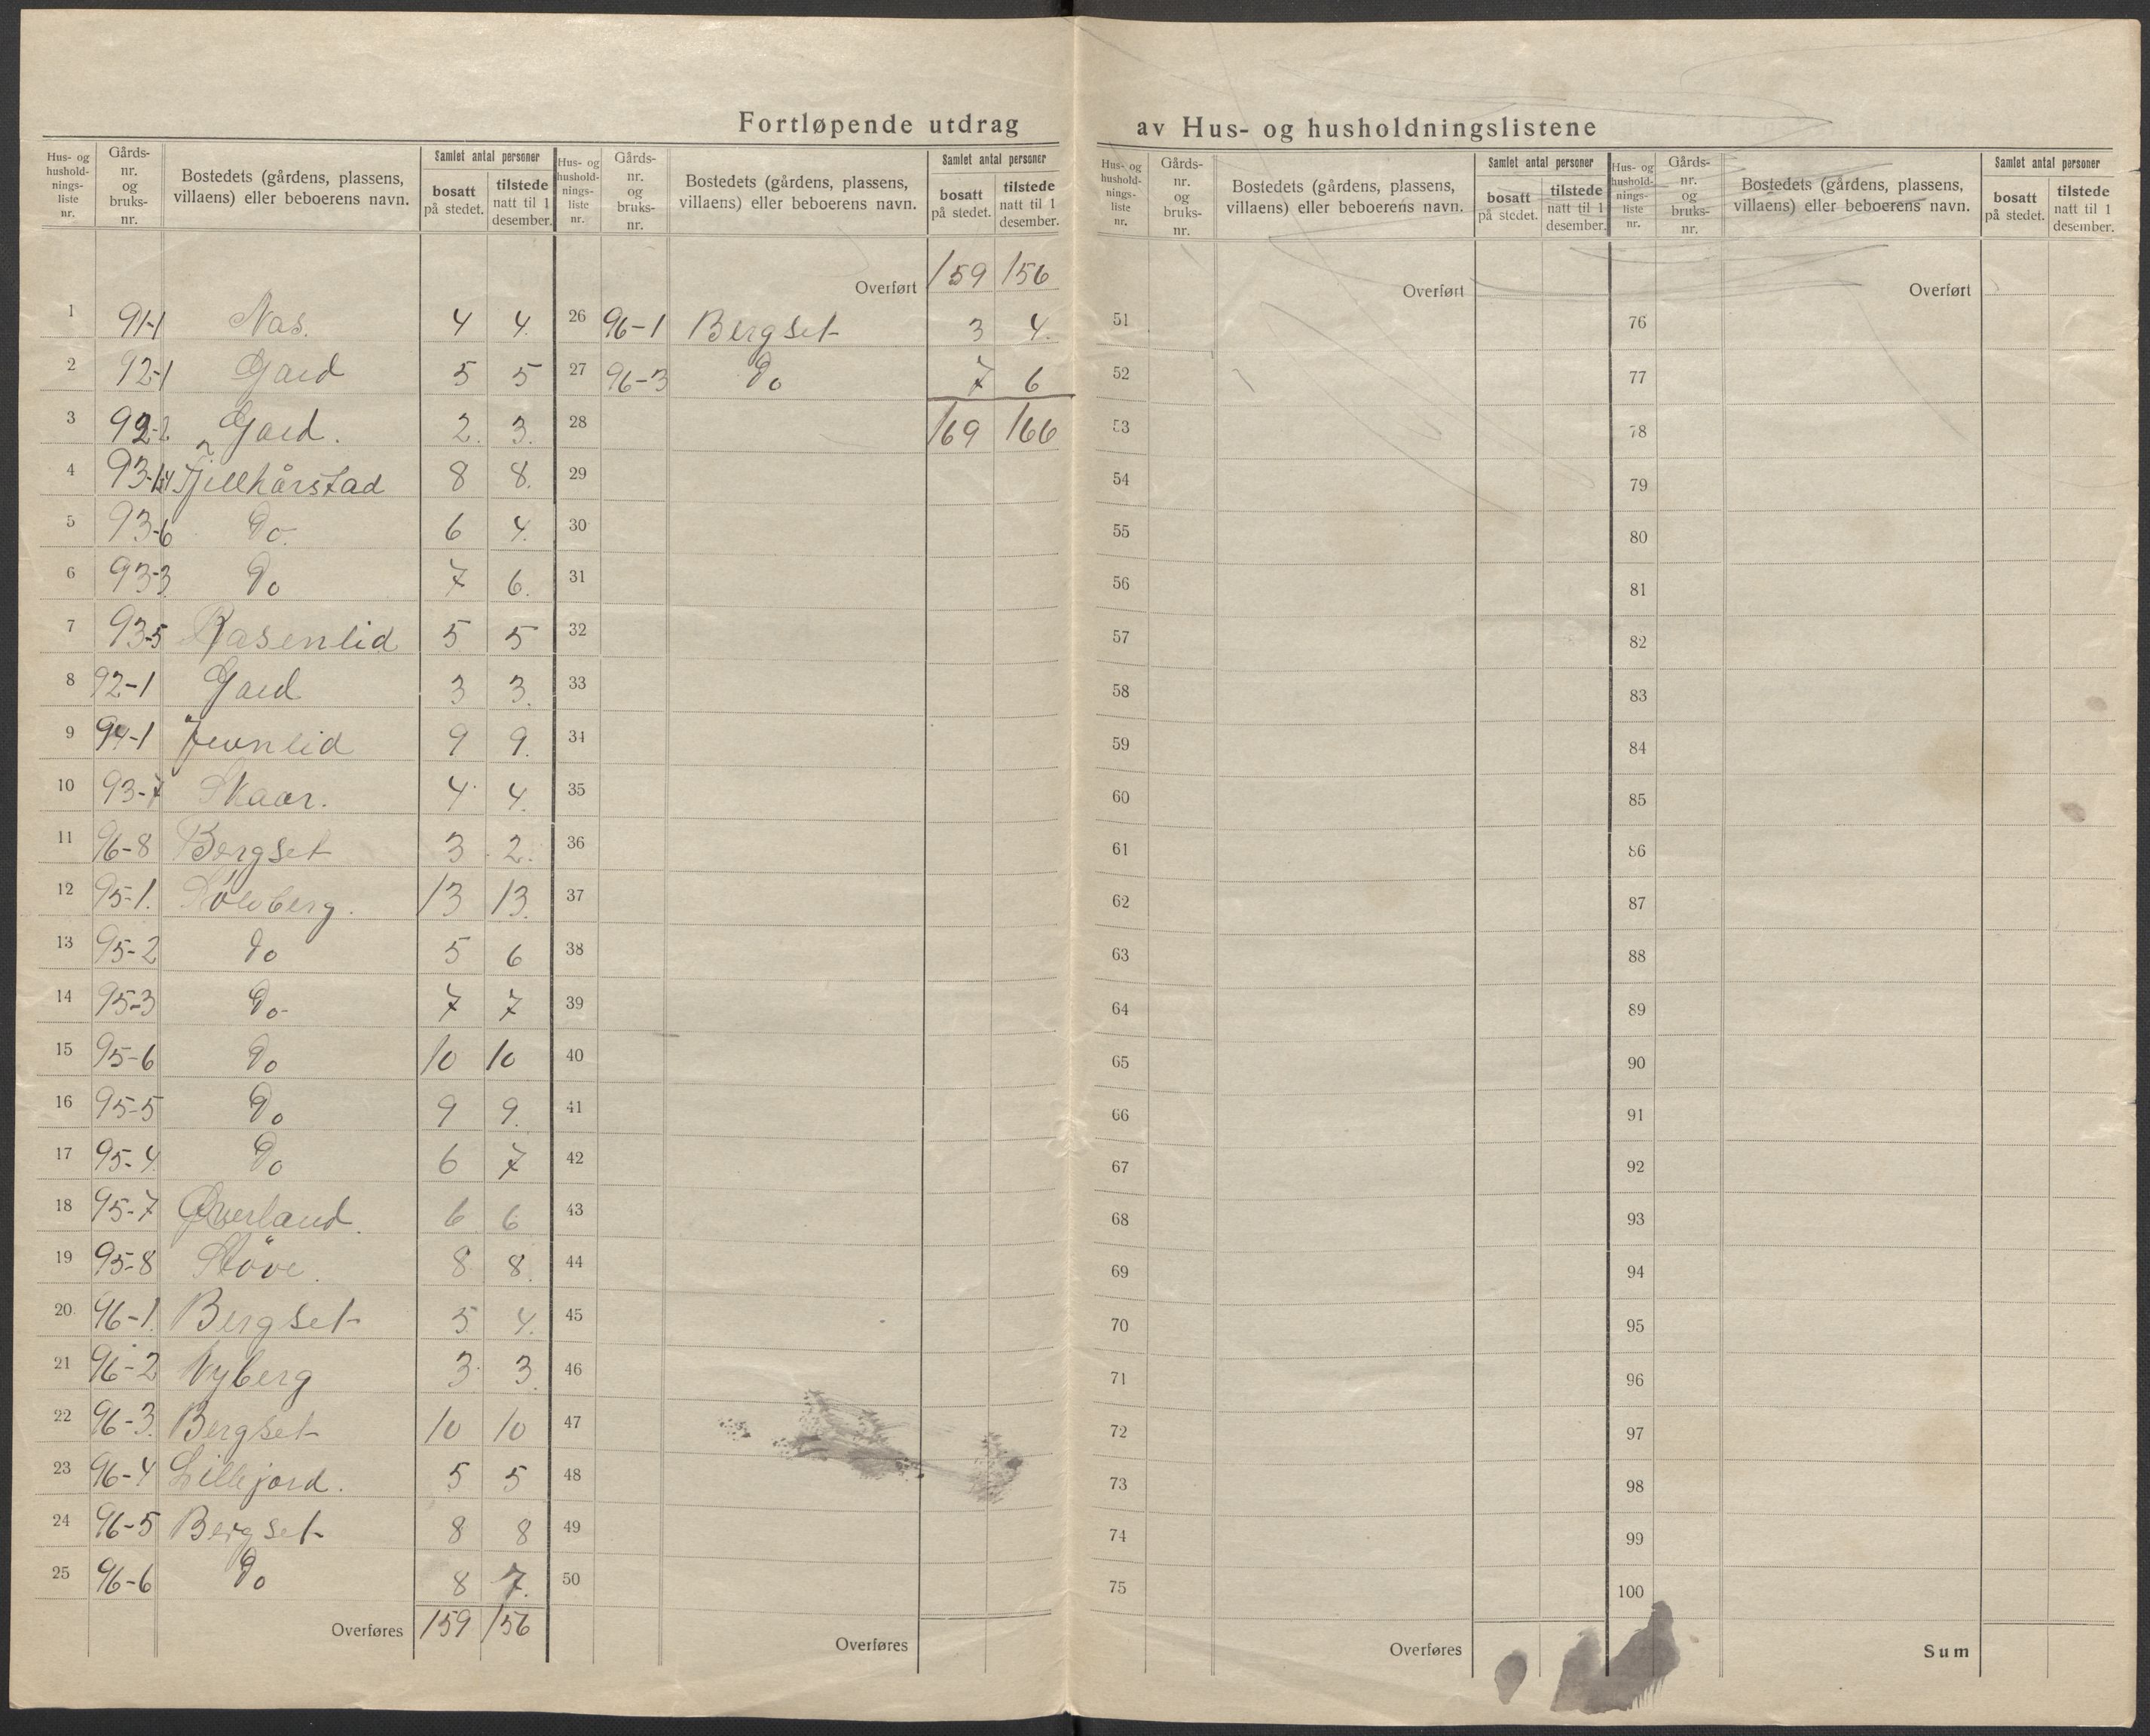 Fortløpende utdrag av Hus- og husholdningslistene
Hus- og husholdningsliste nr. | Gårds-nr. og bruks-nr. | Bostedets (gårdens, plassens, villaens) eller beboerens navn. | Samlet antal personer | bosatt på stedet. | tilstede natt til 1 desember.
1 91-1 Nas. 4 4.
2 92-1 Gard 5 5
3 92-2 Gard. 2. 3.
4 93-1,4 Fjellhårstad 8 8.
5 93-6 Do. 6 4.
6 93-3 Do 7 6.
7 93-5 Rasenlid 5 5
8 92-1 Gard 3 3.
9 94-1 Jevnlid 9 9.
10 93-7 Skaar. 4 4.
11 96-8 Bergset 3 2.
12 95-1. Sölvberg. 13 13.
13 95-2 do 5 6
14 95-3 Do- 7 7
15 95-6 Do 10 10
16 95-5 Do 9 9.
17 95-4. Do 6 7
18 95-7 Øverland. 6 6
19 95-8 Stöve. 8 8.
20 96-1. Bergset 5 4.
21 96-2 Nyberg 3 3.
22 96-3. Bergset 10 10
23 96-4 Lillejord. 5 5
24 96-5 Bergset 8 8
25 96-6 Do 8 7.
Overføres 159 156
Hus- og husholdningsliste nr. | Gårds-nr. og bruks-nr. | Bostedets (gårdens, plassens, villaens) eller beboerens navn. | Samlet antal personer | bosatt på stedet. | tilstede natt til 1 desember.
Overført 159 156
26 96-1 Bergset 3 4.
27 96-3 Do 7 6
28 169 166
29
30
31
32
33
34
35
36
37
38
39
40
41
42
43
44
45
46
47
48
49
50
Overføres
Hus- og husholdningsliste nr. | Gårds-nr. og bruks-nr. | Bostedets (gårdens, plassens, villaens) eller beboerens navn. | Samlet antal personer | bosatt på stedet. | tilstede natt til 1 desember.
Overført
51
52
53
54
55
56
57
58
59
60
61
62
63
64
65
66
67
68
69
70
71
72
73
74
75
Overføres
Hus- og husholdningsliste nr. | Gårds-nr. og bruks-nr. | Bostedets (gårdens, plassens, villaens) eller beboerens navn. | Samlet antal personer | bosatt på stedet. | tilstede natt til 1 desember.
Overført
76
77
78
79
80
81
82
83
84
85
86
87
88
89
90
91
92
93
94
95
96
97
98
99
100
Sum